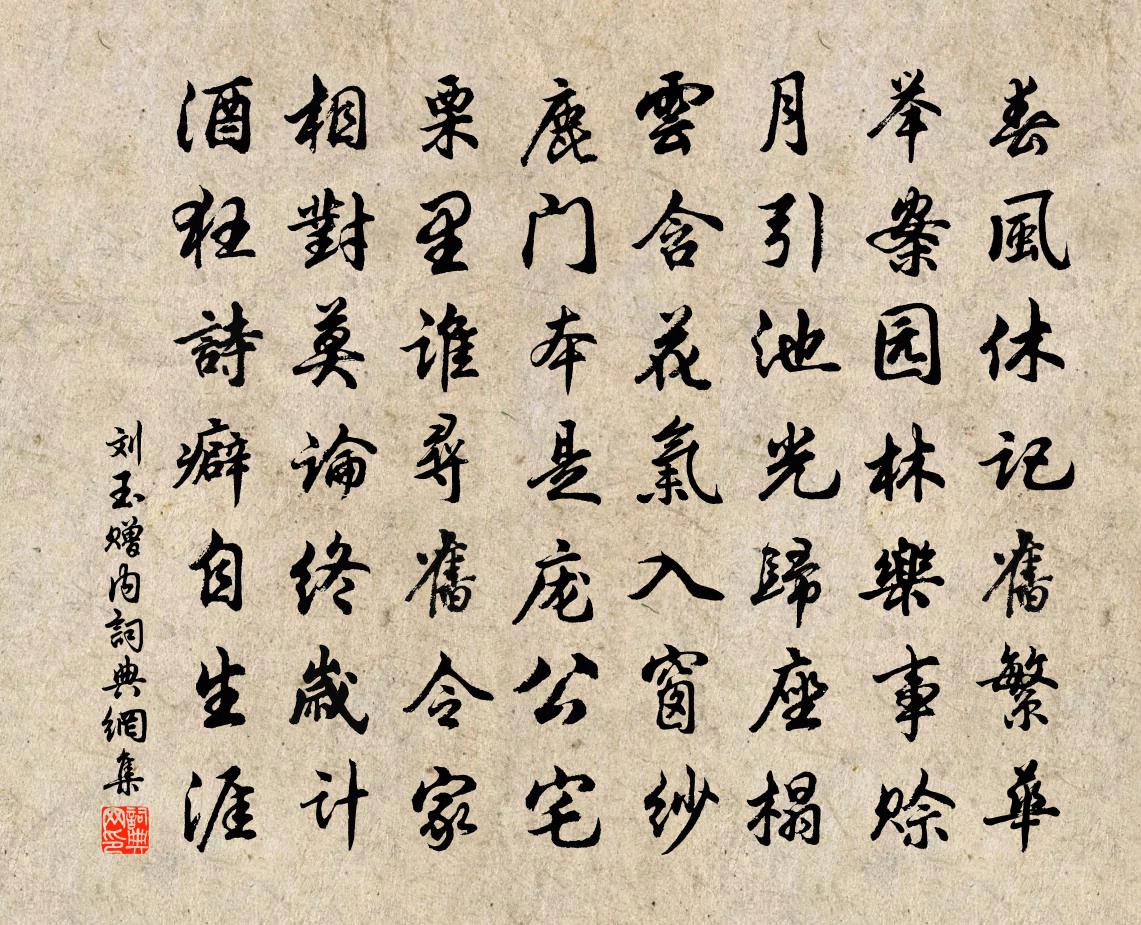 春風休记舊繁華
举案园林樂事賒
月引池光歸座榻
雲含花氣入窗紗
鹿门本是庞公宅
栗里谁尋舊令家
相對莫論終歲计
酒狂詩癖自生涯
刘玉赠内詞典網集
詞典网印